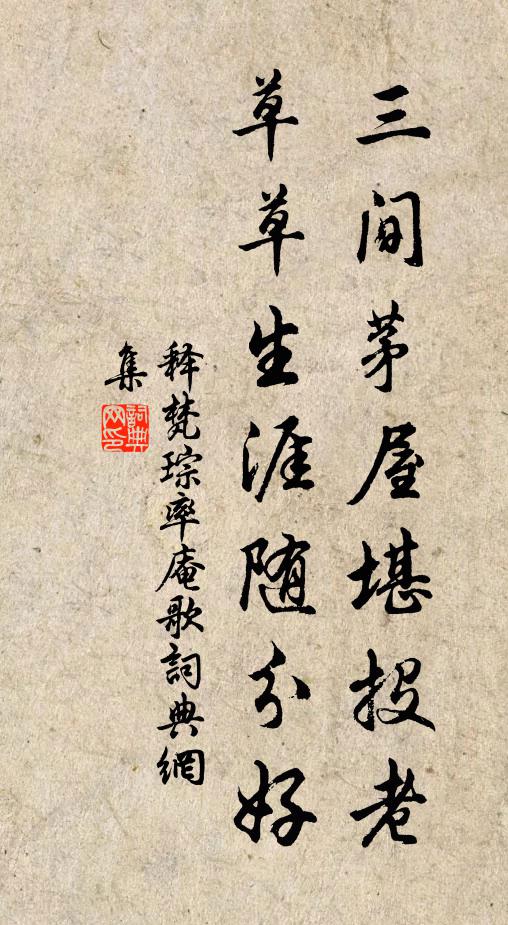 三間茅屋堪投老
草草生涯随分好
释梵琮率庵歌詞典網
集
詞典網印